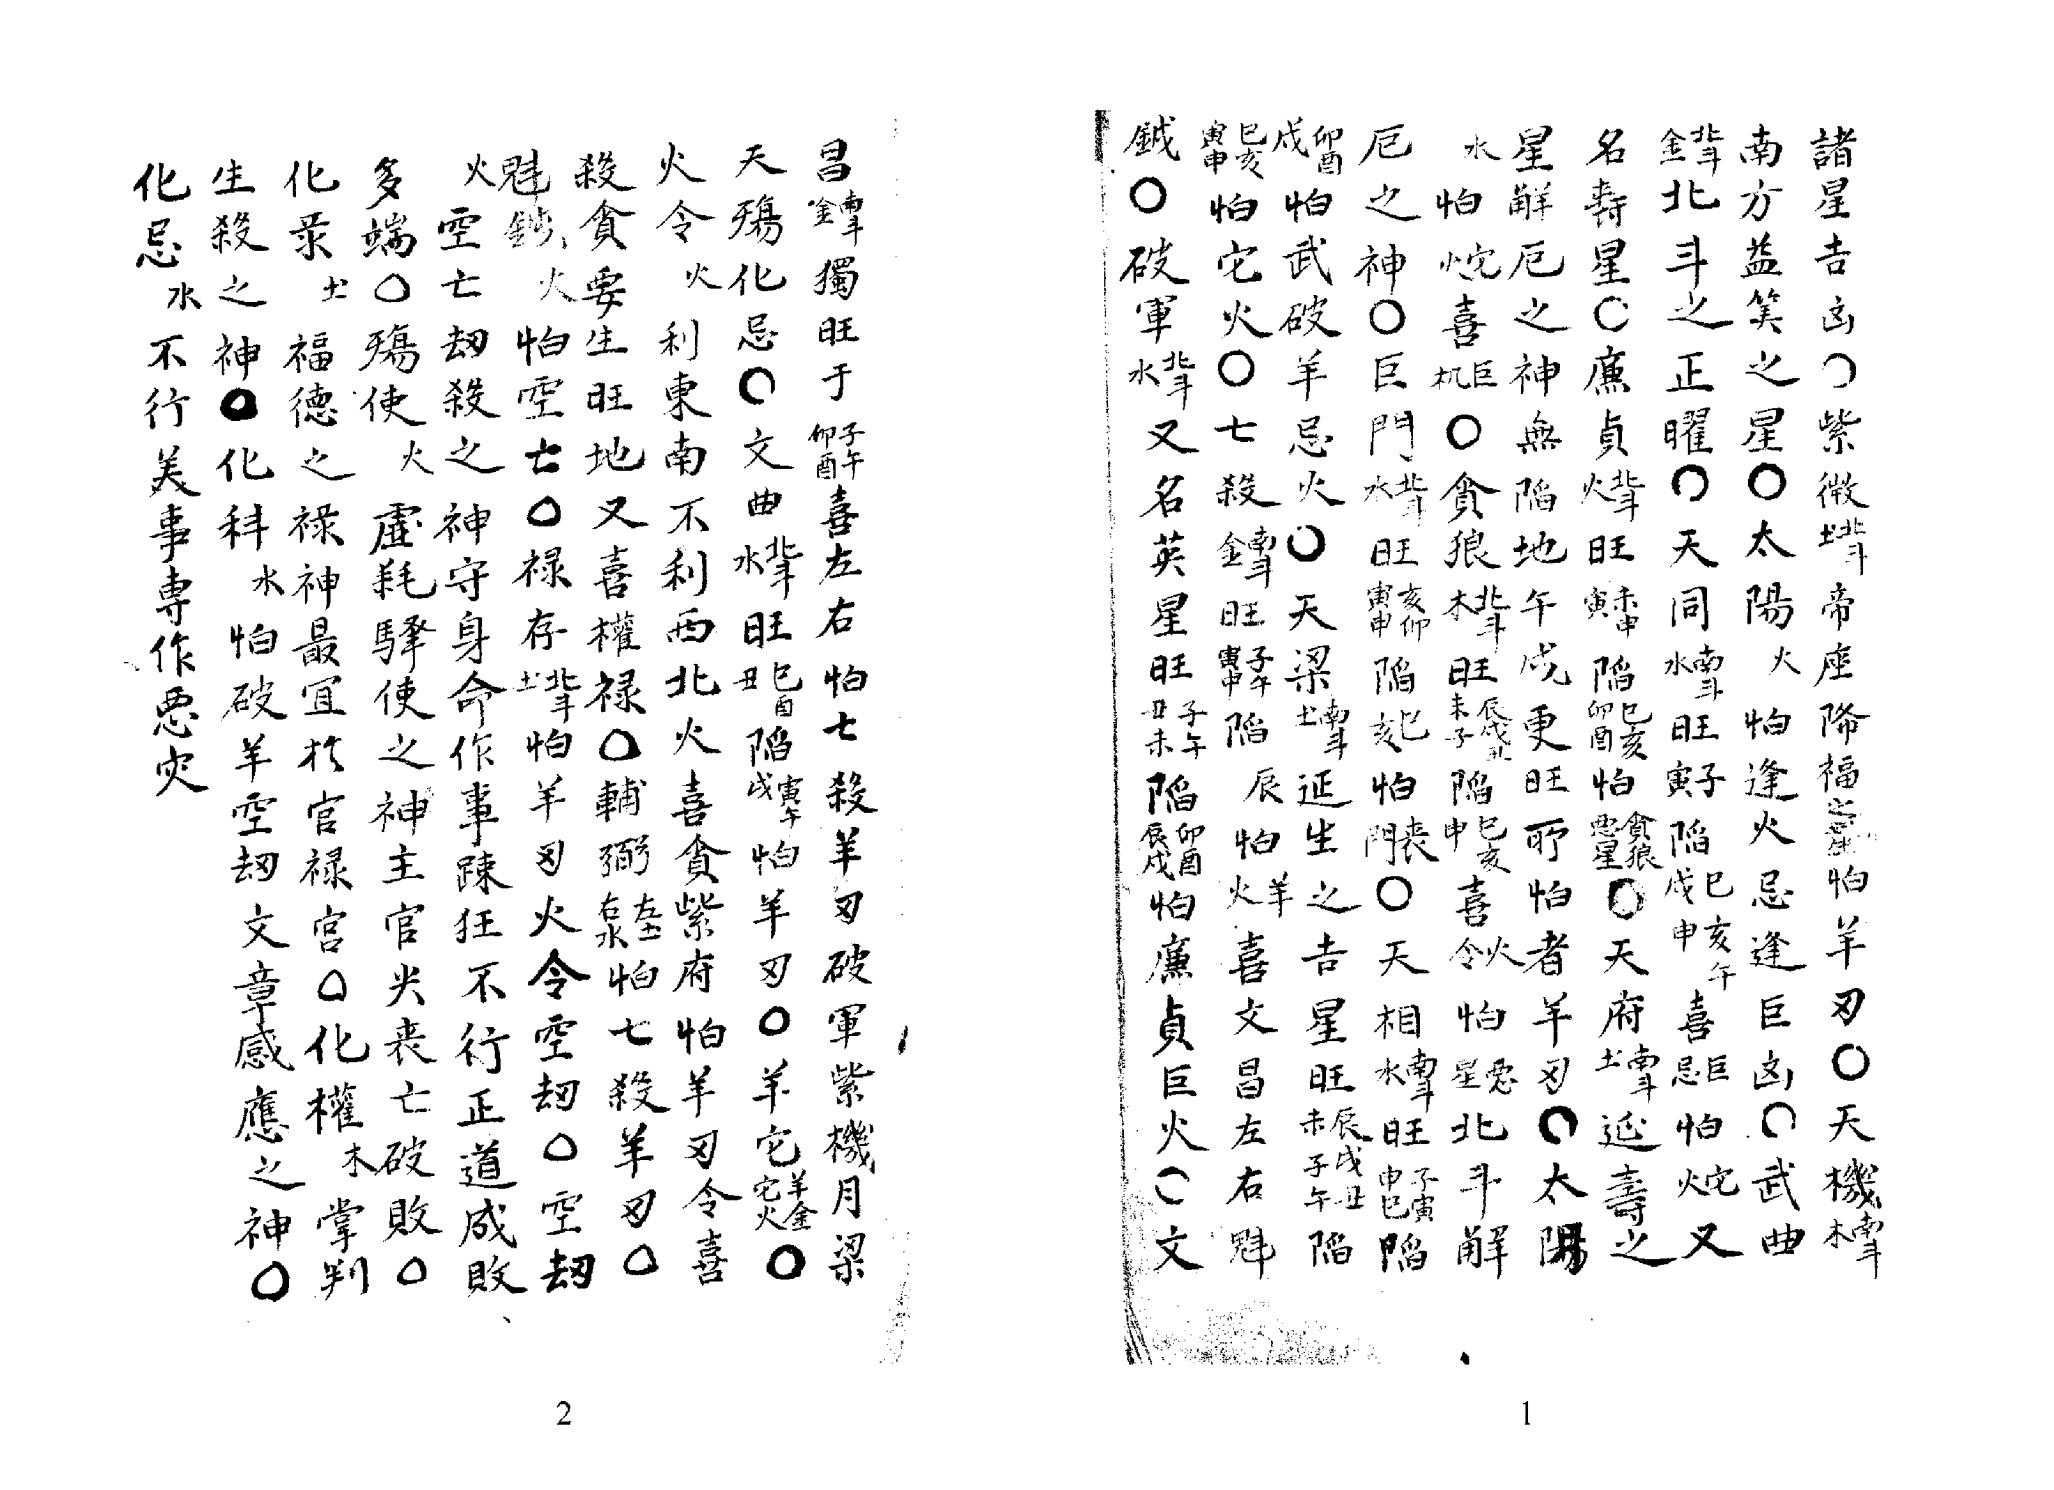 諸星吉凶○紫微北斗土帝座降福之星怕羊刃○天機南斗木
南方益筭之星○太陽火怕逢火忌逢巨凶○武曲
北斗金北斗之正曜○天同南斗水旺子寅陷巳亥午戌申喜巨忌怕火陀又
名壽星○廉貞北斗火旺未申寅陷巳亥卯酉怕貪狼惡星○天府南斗土延壽之
星解厄之神無陷地午戌更旺所怕者羊刃○太陽
水怕火陀喜巨机○貪狼北斗木旺辰戌丑未子陷巳亥申喜火令怕惡星北斗解
厄之神○巨門北斗水旺亥卯寅申陷巳亥怕喪門○天相南斗水旺子寅申巳陷
卯酉戌怕武破羊忌火○天梁南斗土延生之吉星旺辰戌丑未子午陷
巳亥寅申怕它火○七殺南斗金旺子午寅申陷辰怕羊火喜文昌左右魁
鉞○破軍北斗水又名英星旺子午丑未陷卯酉辰戌怕廉貞巨火○文
昌南斗金獨旺于子午卯酉喜左右怕七殺羊刃破軍紫機月梁
天殤化忌○文曲北斗水旺巳酉丑陷寅午戌怕羊刃○羊它羊金它火○
火令火利東南不利西北火喜貪紫府怕羊刃令喜
殺貪要生旺地又喜權祿○輔弼左土右水怕七殺羊刃○
魁鉞火怕空亡○祿存北斗土怕羊刃火令空刼○空刼
火空亡刼殺之神守身命作事踈狂不行正道成敗
多端○殤使火虛耗驛使之神主官災喪亡破敗○
化彔土福德之祿神最宜於官祿宮○化權木掌判
生殺之神○化科水怕破羊空刼文章感應之神○
化忌水不行美事專作惡灾
2
1